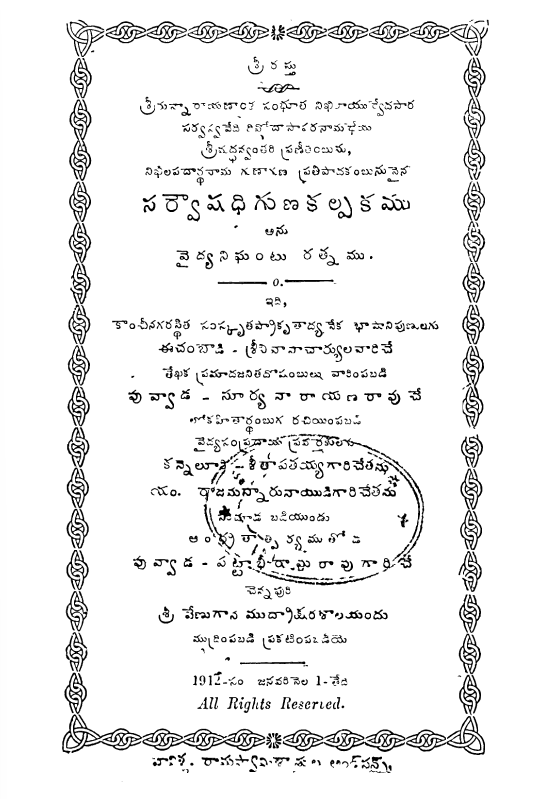 శ్రీ రస్తు
శ్రీమన్నారాయణాంశ సంభూత నిఖిలాయుర్వేదసార
సర్వస్వవేది దివోదాసాపరనామధేయ
శ్రీమద్ధన్వంతరి ప్రణీతంబును,
నిఖిలపదార్థనామ గుణగణ ప్రతిపాదకంబునునైన
సర్వౌషధిగుణకల్పకము
అను
వైద్యనిఘంటు రత్నము.
ఇది,
కాంచీనగరస్థిత సంస్కృతప్రాకృతాద్యనేక భాషానిపుణులగు
ఈచంబాడి - శ్రీనివాసాచార్యులవారిచే
లేఖక ప్రమాదజనితదోషంబులు వారింపబడి
పువ్వాడ - సూర్యనారాయణరావుచే
లోకహితార్థంబుగ రచియింపబడి
వైద్యసంప్రదాయ ప్రవర్తకులగు
కన్నెలూరి - సీతాపతయ్యగారిచేతను
యం. రాజమన్నారునాయుడిగారిచేతను
బడియుండు
ఆంధ్ర తాత్పర్యముతోడ
పువ్వాడ - పట్టాభిరామరావుగారిచే
చెన్నపురి
శ్రీ వేణుగాన ముద్రాక్షరశాలయందు
ముద్రింపబడి ప్రకటింపబడియె
1912-సం జనవరినెల 1-తేది
All Rights Reserved.
వావిళ్ల. రామస్వామిశాస్త్రులు అండ్ సన్స్,